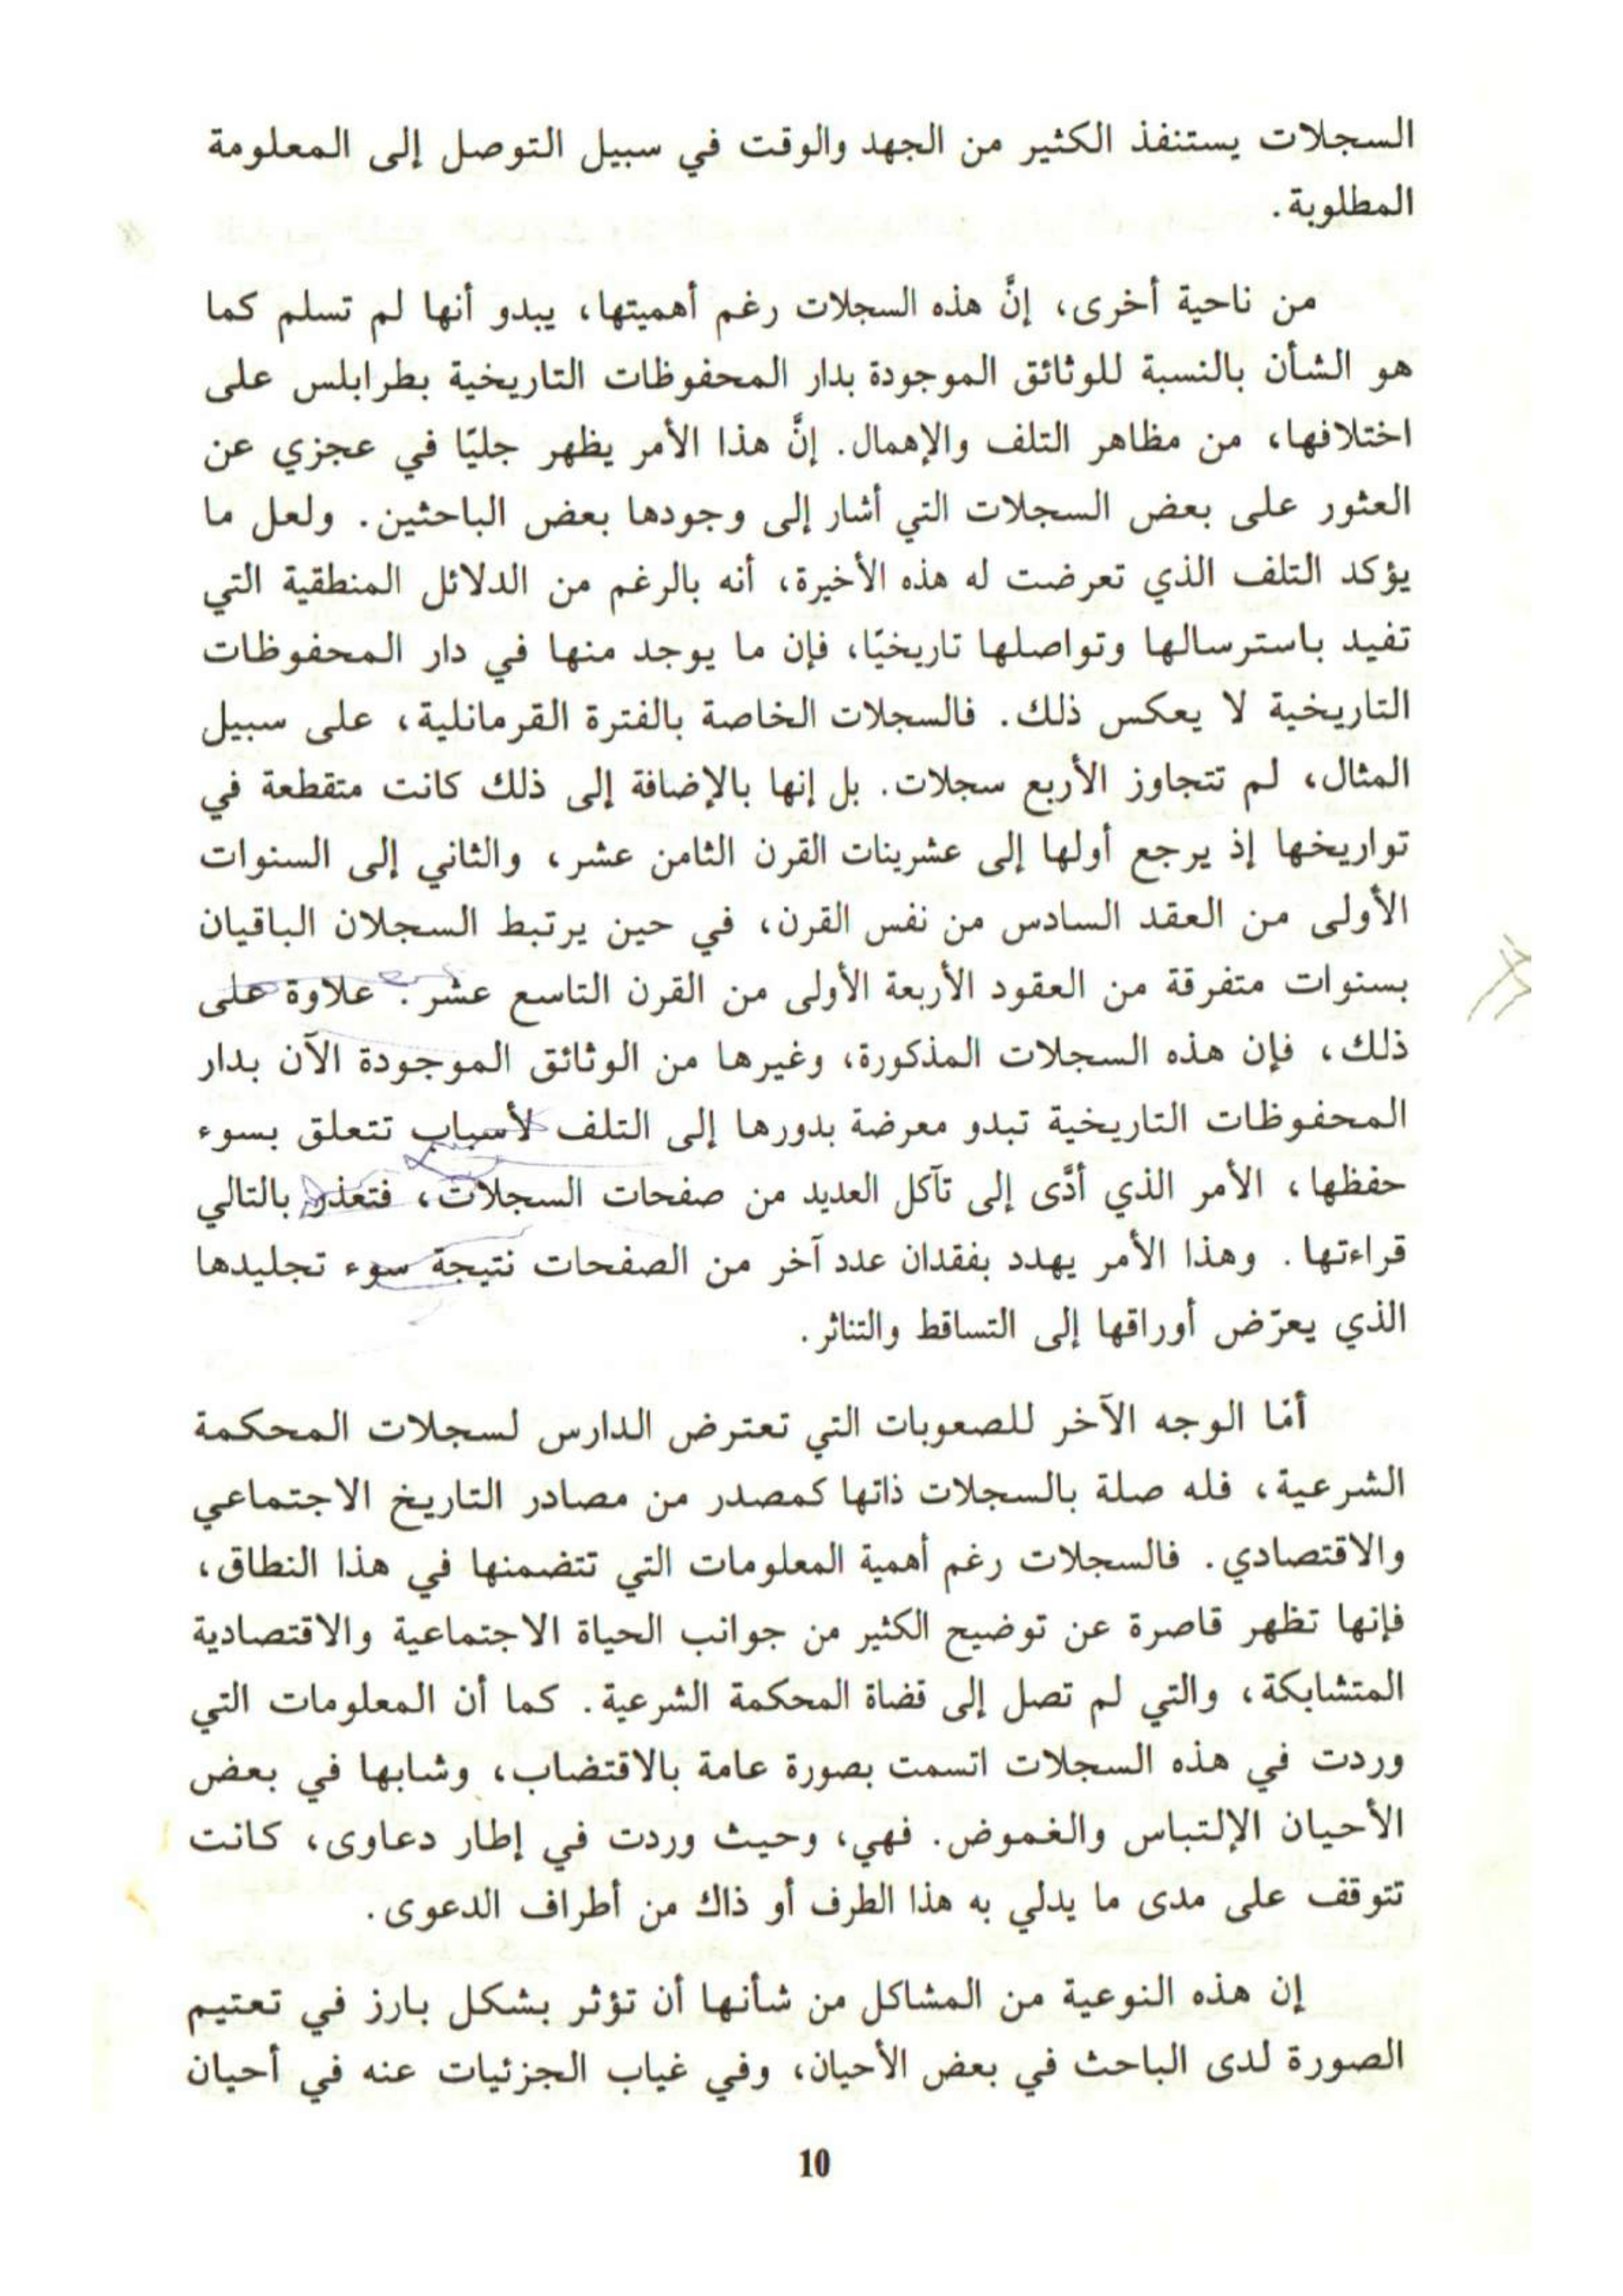 السجلات يستنفذ الكثير من الجهد والوقت في سبيل التوصل إلى المعلومة
المطلوبة.
من ناحية أخرى، إنَّ هذه السجلات رغم أهميتها، يبدو أنها لم تسلم كما
هو الشأن بالنسبة للوثائق الموجودة بدار المحفوظات التاريخية بطرابلس على
اختلافها، من مظاهر التلف والإهمال. إنَّ هذا الأمر يظهر جليًا في عجزي عن
العثور على بعض السجلات التي أشار إلى وجودها بعض الباحثين. ولعل ما
يؤكد التلف الذي تعرضت له هذه الأخيرة، أنه بالرغم من الدلائل المنطقية التي
تفيد باسترسالها وتواصلها تاريخيًا، فإن ما يوجد منها في دار المحفوظات
التاريخية لا يعكس ذلك. فالسجلات الخاصة بالفترة القرمانلية، على سبيل
المثال، لم تتجاوز الأربع سجلات. بل إنها بالإضافة إلى ذلك كانت متقطعة في
تواريخها إذ يرجع أولها إلى عشرينات القرن الثامن عشر، والثاني إلى السنوات
الأولى من العقد السادس من نفس القرن، في حين يرتبط السجلان الباقيان
بسنوات متفرقة من العقود الأربعة الأولى من القرن التاسع عشر. علاوة على
ذلك، فإن هذه السجلات المذكورة، وغيرها من الوثائق الموجودة الآن بدار
المحفوظات التاريخية تبدو معرضة بدورها إلى التلف لأسباب تتعلق بسوء
حفظها، الأمر الذي أدَّى إلى تآكل العديد من صفحات السجلات، فتعذر بالتالي
قراءتها. وهذا الأمر يهدد بفقدان عدد آخر من الصفحات نتيجة سوء تجليدها
الذي يعرّض أوراقها إلى التساقط والتناثر.
أمّا الوجه الآخر للصعوبات التي تعترض الدارس لسجلات المحكمة
الشرعية، فله صلة بالسجلات ذاتها كمصدر من مصادر التاريخ الاجتماعي
والاقتصادي. فالسجلات رغم أهمية المعلومات التي تتضمنها في هذا النطاق،
فإنها تظهر قاصرة عن توضيح الكثير من جوانب الحياة الاجتماعية والاقتصادية
المتشابكة، والتي لم تصل إلى قضاة المحكمة الشرعية. كما أن المعلومات التي
وردت في هذه السجلات اتسمت بصورة عامة بالاقتضاب، وشابها في بعض
الأحيان الإلتباس والغموض. فهي، وحيث وردت في إطار دعاوى، كانت
تتوقف على مدى ما يدلي به هذا الطرف أو ذاك من أطراف الدعوى.
إن هذه النوعية من المشاكل من شأنها أن تؤثر بشكل بارز في تعتيم
الصورة لدى الباحث في بعض الأحيان، وفي غياب الجزئيات عنه في أحيان
10